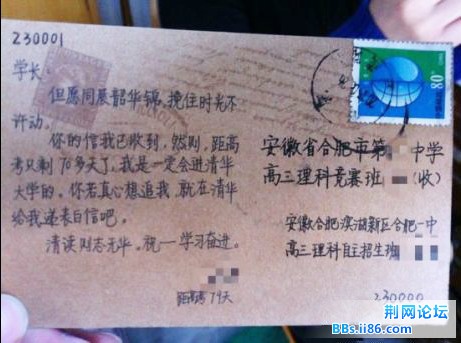 230001
学长:
但愿同展韶华锦,挽住时光不
许动。
你的信我已收到,然则,距高
考只剩70多天了,我是一定会进清华
大学的。你若真心想追我,就在清华
给我递表白信吧。
清读则志无华。祝一学习奋进。
距高考79天
80
安徽省合肥市第 中学
高三理科竞赛班 (收)
安徽合肥滨湖新区合肥一中
高三理科自主招生班
230000
荆网论坛
BBs.ii86.com